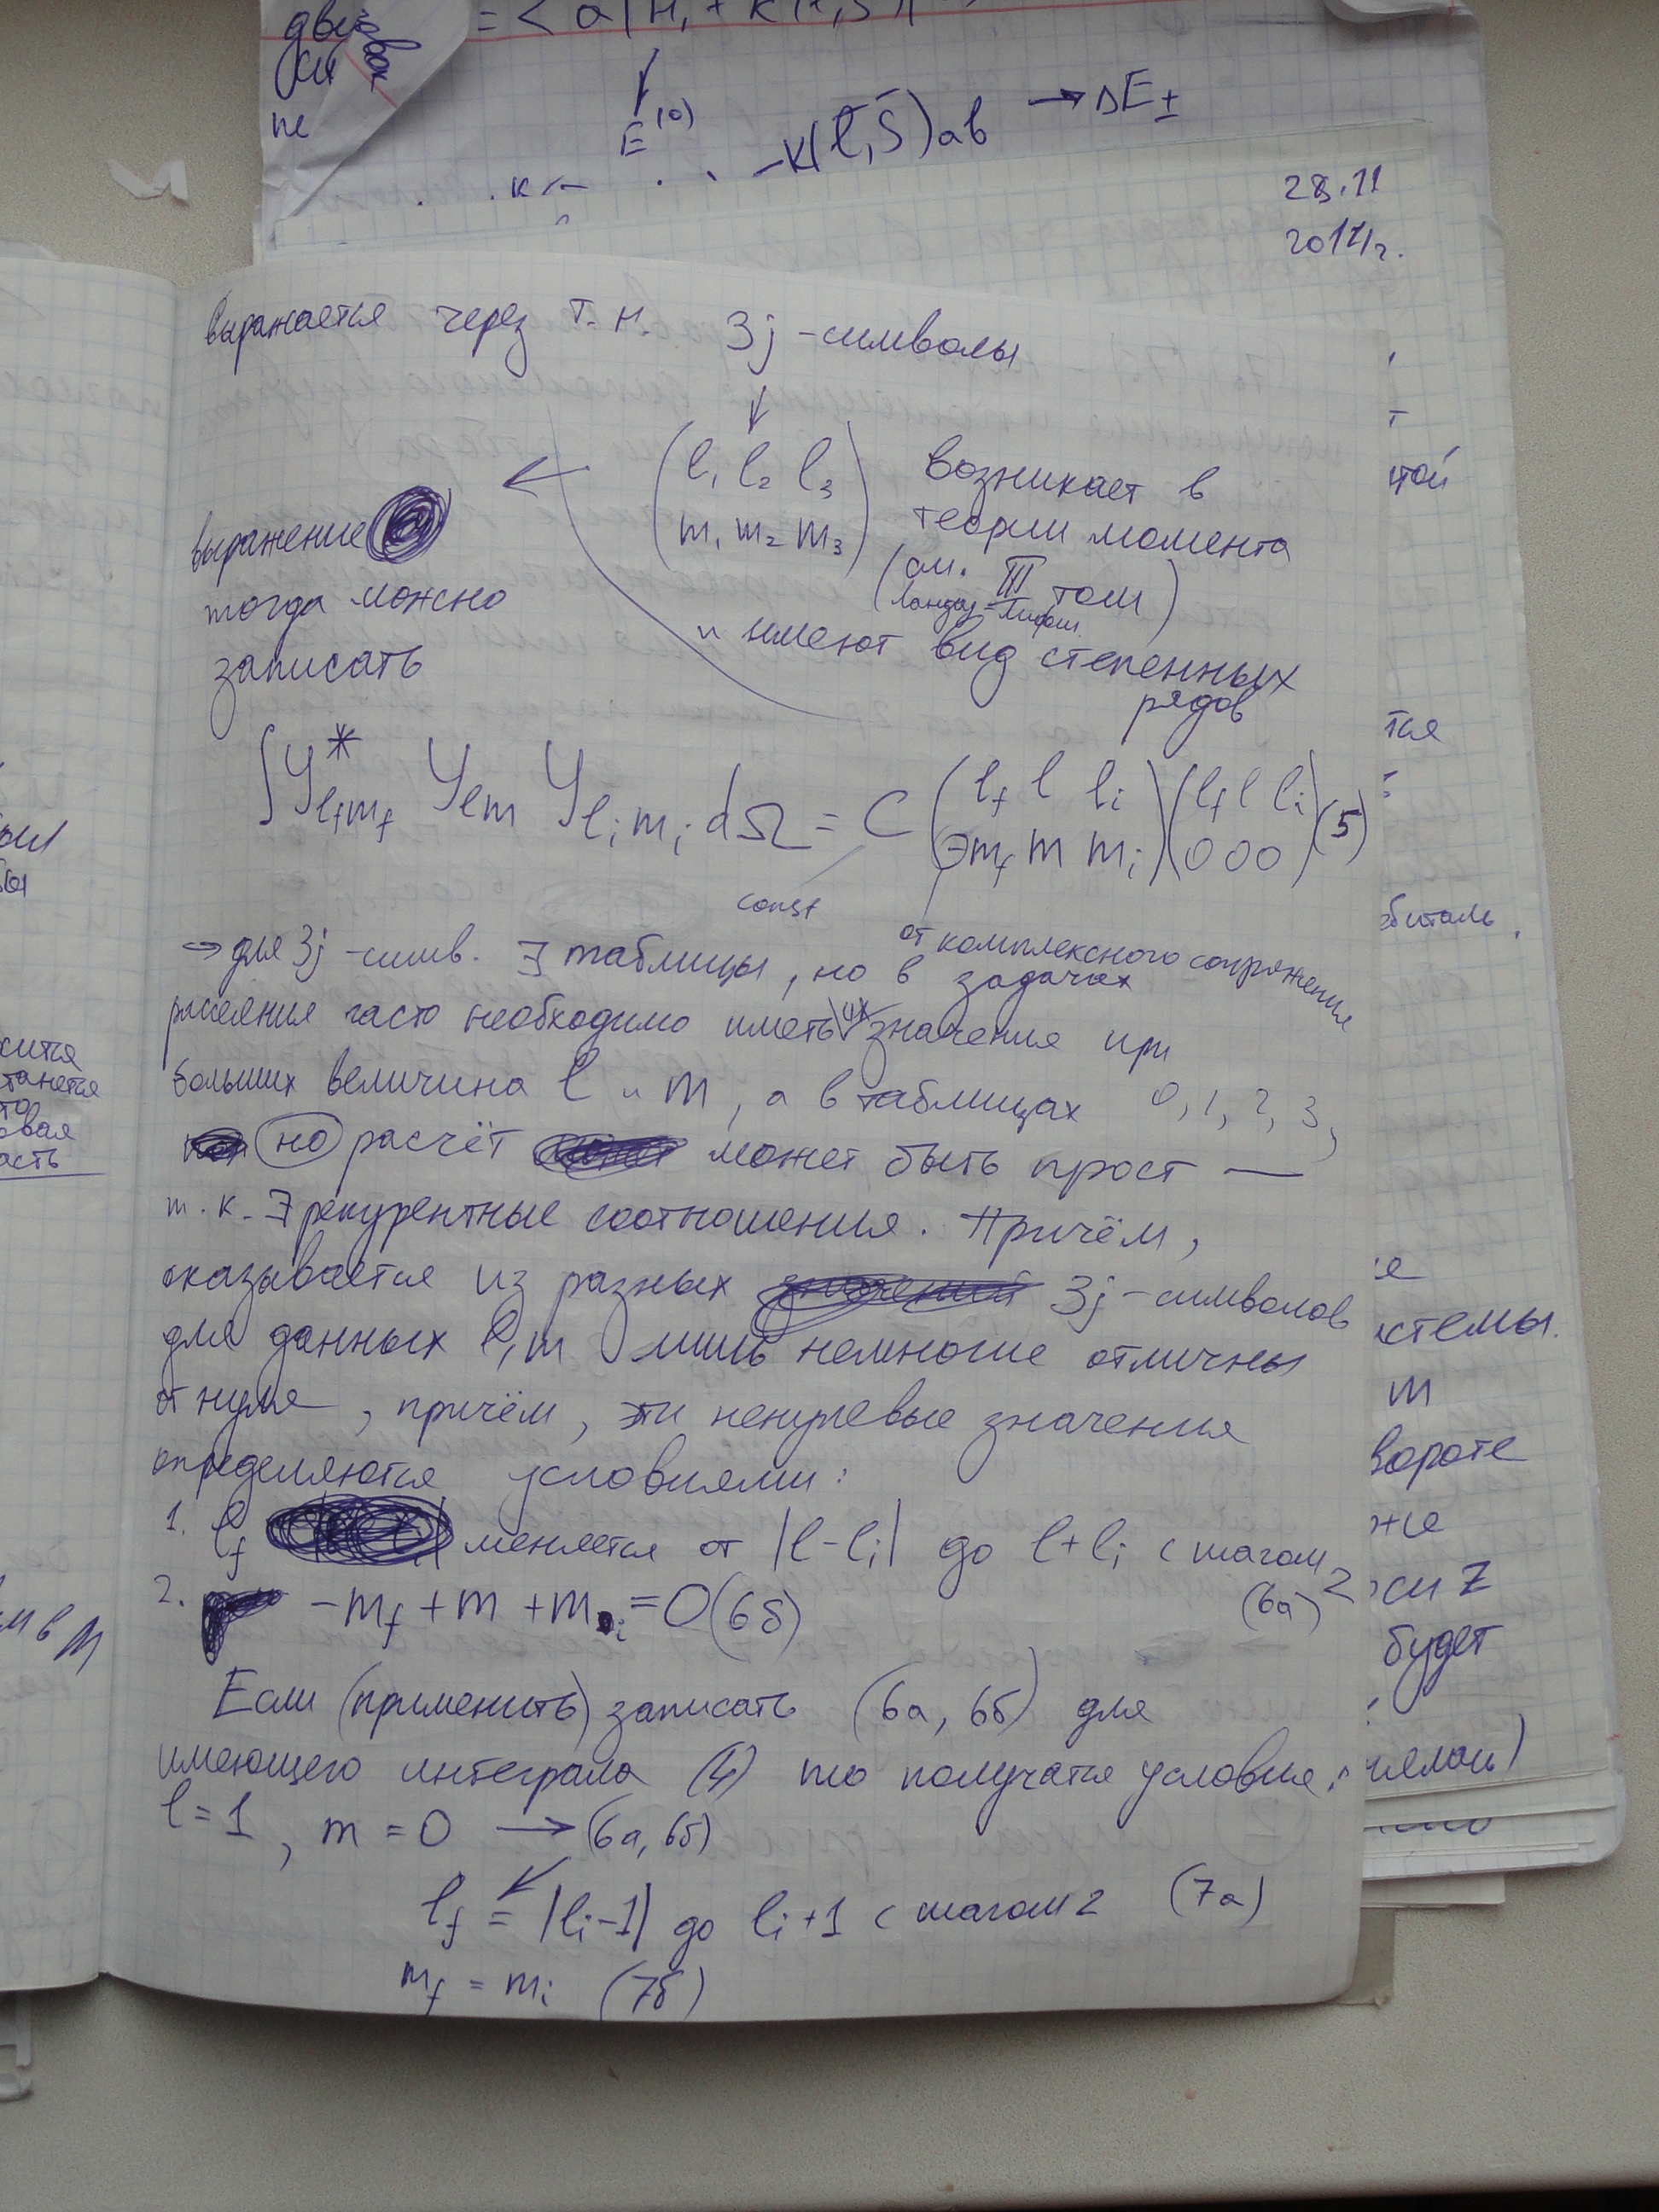 = < a | H₁ +
E⁽⁰⁾
-K(l̄, S̄)ab → ΔE±
28.11
2017г.
выражается через т.н. 3j-символы
(l₁ l₂ l₃
m₁ m₂ m₃)
возникает в
теории момента
(см. III том
Ландау-Лифш.)
и имеют вид степенных
рядов
выражение
тогда можно
записать
∫Y*lfmf Ylm Ylimi dΩ = C (lf l li) (lf l li) (5)
(-mf m mi) (0 0 0)
const
от комплексного сопряжения
⇒ для 3j-симв. ∃ таблицы, но в задачах
рассеяния часто необходимо иметь их значения при
больших величина l и m, а в таблицах 0, 1, 2, 3,
но расчёт может быть прост —
т.к. ∃ рекурентные соотношения. Причём,
оказывается из разных 3j-символов
для данных l, m лишь немногие отличны
от нуля, причём, эти ненулевые значения
определяются условиями:
1. lf меняется от |l-li| до l+li с шагом 2
(6а)
2. -mf + m + mi = 0 (6б)
Если (применить) записать (6а, 6б) для
имеющего интеграла (4) то получатся условия:
l = 1, m = 0 → (6а, 6б)
lf = |li-1| до li+1 с шагом 2 (7а)
mf = mi (7б)
т
той
тся
биталь.
стемы.
m
вороте
же
си Z
будет